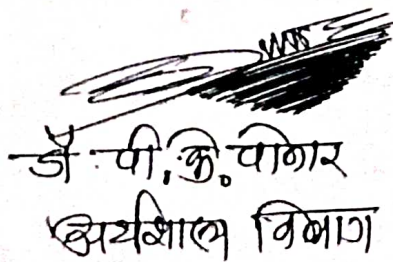 डॉ. पी. के. पोनार
अर्थशास्त्र विभाग